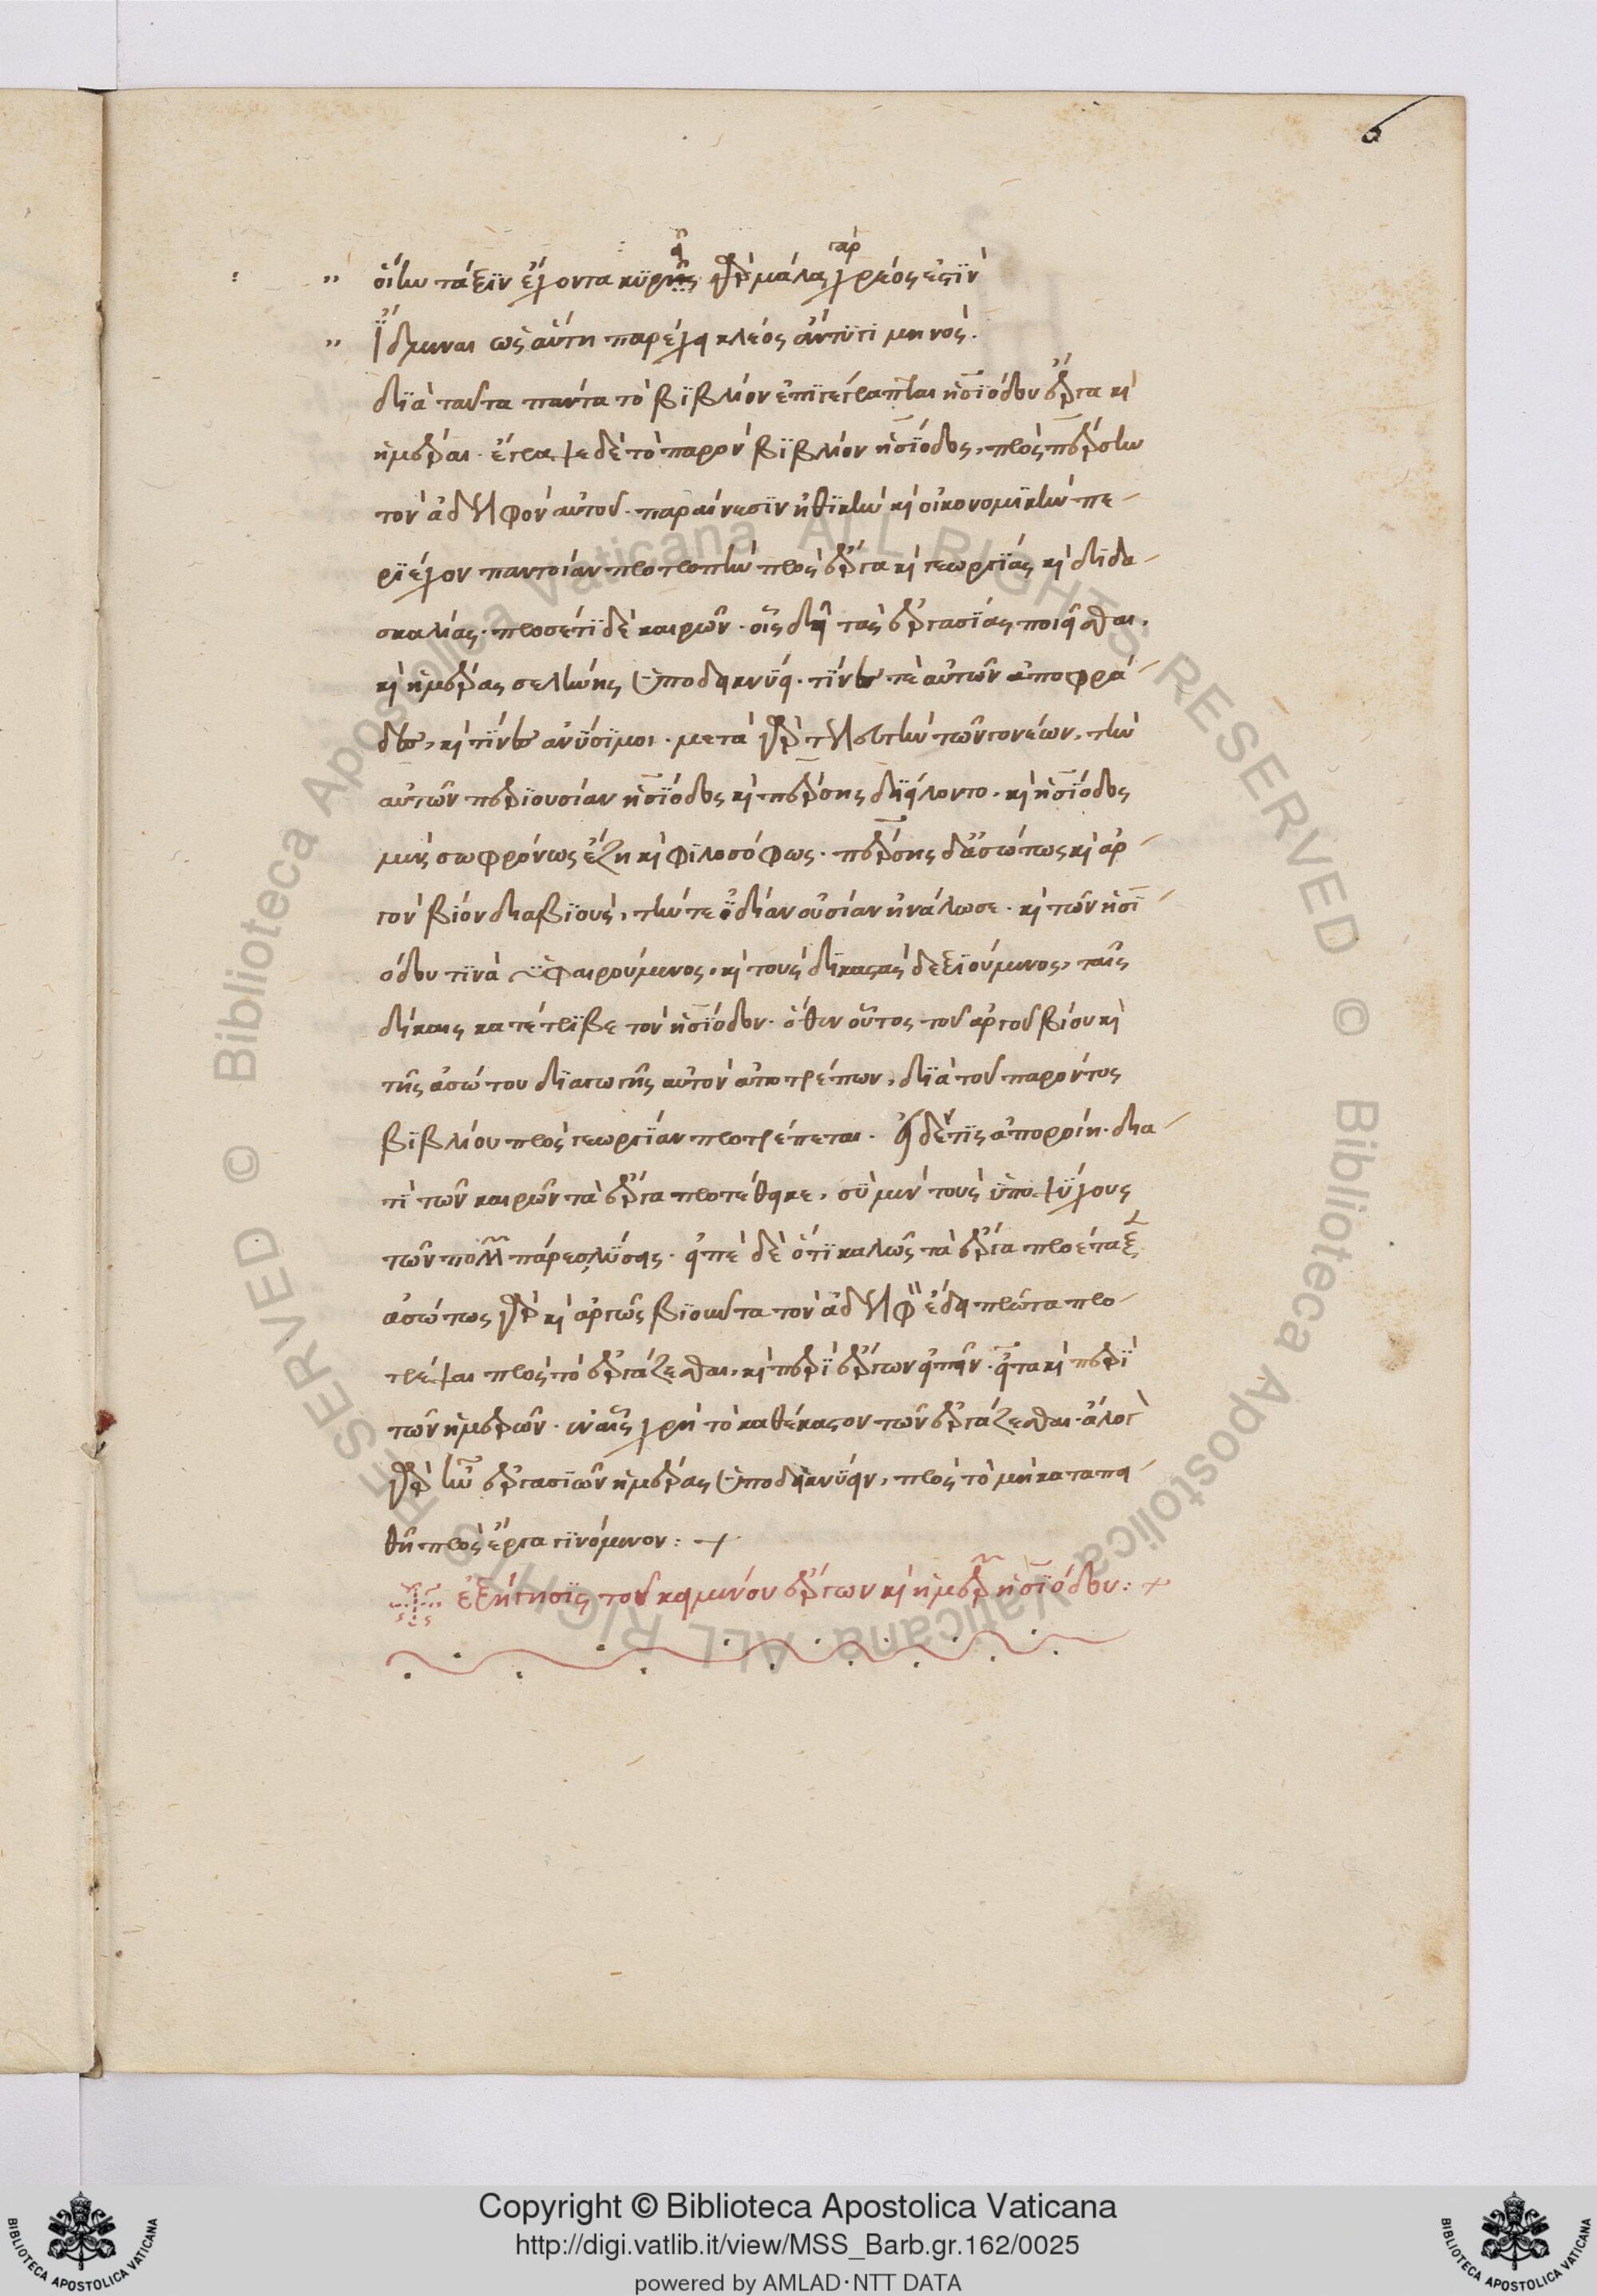 6
οἵην τάξιν ἔχοντα κυρεῖ μάλα γὰρ χρέος ἐστὶν
ἴδμεναι ὡς αὐτὴ παρέχει κλέος ἀντιτεμηνός.
διὰ ταῦτα πάντα τὸ βιβλίον ἐπιγέγραπται ἡσιόδου ἔργα καὶ
ἡμέραι. ἔγραψε δὲ τὸ παρὸν βιβλίον ἡσίοδος, πρὸς πέρσην
τὸν ἀδελφὸν αὐτοῦ. παραίνεσιν ἠθικὴν καὶ οἰκονομικὴν πε-
ριέχον παντοίαν προτροπὴν πρὸς ἔργα καὶ γεωργίας καὶ διδα-
σκαλίας. προσέτι δὲ καιρῶν. οἷς δεῖ τὰς ἐργασίας ποιεῖσθαι.
καὶ ἡμέρας σελήνης ὑποδεικνύει. τίνες τὲ αὐτῶν ἀποφρά-
δες, καὶ τίνες ἀνύσιμοι. μετὰ γὰρ τελευτὴν τῶν γονέων, τὴν
αὐτῶν περιουσίαν ἡσίοδος καὶ πέρσης διείλοντο. καὶ ἡσίοδος
μὲν σωφρόνως ἔζη καὶ φιλοσόφως. πέρσης δ' ἀσώτως καὶ ἀρ-
γὸν βίον διαβιοὺς, τήν τε ἰδίαν οὐσίαν ἠνάλωσε. καὶ τῶν ἡσι-
όδου τινὰ ὑφαιρούμενος, καὶ τοὺς δικαστὰς δεξιούμενος, ταῖς
δίκαις κατέτριβε τὸν ἡσίοδον. ὅθεν οὗτος τοῦ ἀργοῦ βίου καὶ
τῆς ἀσώτου διαγωγῆς αὐτὸν ἀποτρέπων, διὰ τοῦ παρόντος
βιβλίου πρὸς γεωργίαν προτρέπεται. εἰ δέ τις ἀποροίη. δια-
τί τῶν καιρῶν τὰ ἔργα προτέθεικε, σὺ μὲν τοὺς ὑποψύχους
τῶν πολλῶν πάρες λύσεις. εἰπὲ δὲ ὅτι καλῶς τὰ ἔργα προέταξε
ἀσώτως γὰρ καὶ ἀργῶς βιοῦντα τὸν ἀδελφὸν ἔδει πρῶτα προ-
τρέψαι πρὸς τὸ ἐργάζεσθαι, καὶ περὶ ἔργων εἰπεῖν. εἶτα καὶ περὶ
τῶν ἡμερῶν. ἐν αἷς χρὴ τὸ καθέκαστον τῶν ἐργάζεσθαι. ἄλογον
γὰρ ἦν ἐργασιῶν ἡμέρας ὑποδεικνύειν, πρὸς τὸ μὴ καταπει-
θῆ πρὸς ἔργα γινόμενον:
ἐξήγησις τοῦ κειμένου ἔργων καὶ ἡμερῶν ἡσιόδου:
Copyright © Biblioteca Apostolica Vaticana
http://digi.vatlib.it/view/MSS_Barb.gr.162/0025
powered by AMLAD·NTT DATA